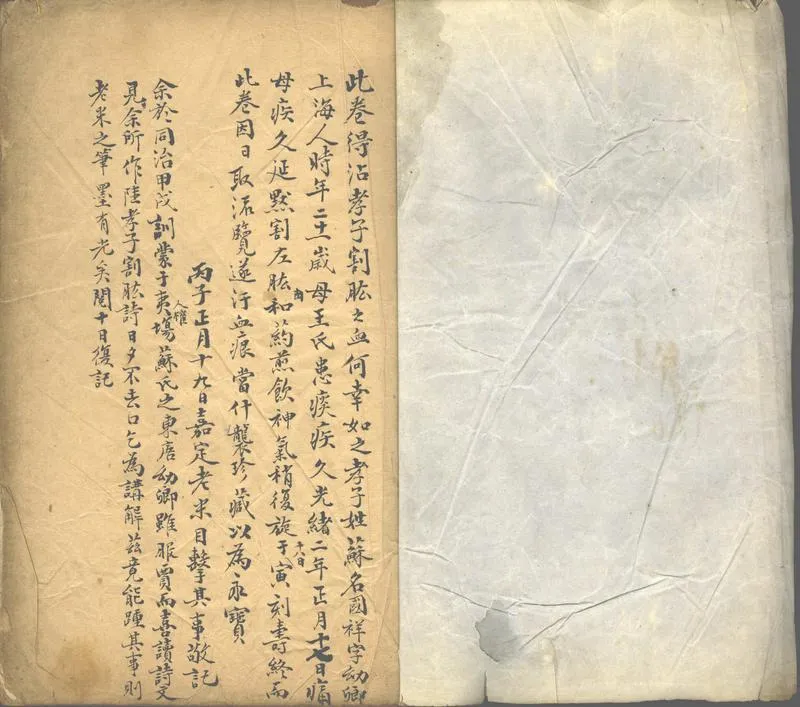 此卷得沾孝子割肱之血何幸如之孝子姓蘇名國祥字幼卿
上海人時年二十一歲母王氏患痰疾久光緒二年正月十七日痛
母疾久延黙割左肱肉和药煎飲神氣稍復旋于十八日寅刻壽終而
此卷因日取流覽遂污血痕當什襲珍藏以為永寶
丙子正月十九日嘉定老米目擊其事敬記
余於同治甲戌訓蒙于夷塲蘇氏之東唐幼卿雖服賈而喜讀詩文
見余所作陸孝子割肱詩日夕不去口乞為講解茲竟能踵其事則
老米之筆墨有光矣閱十日復記